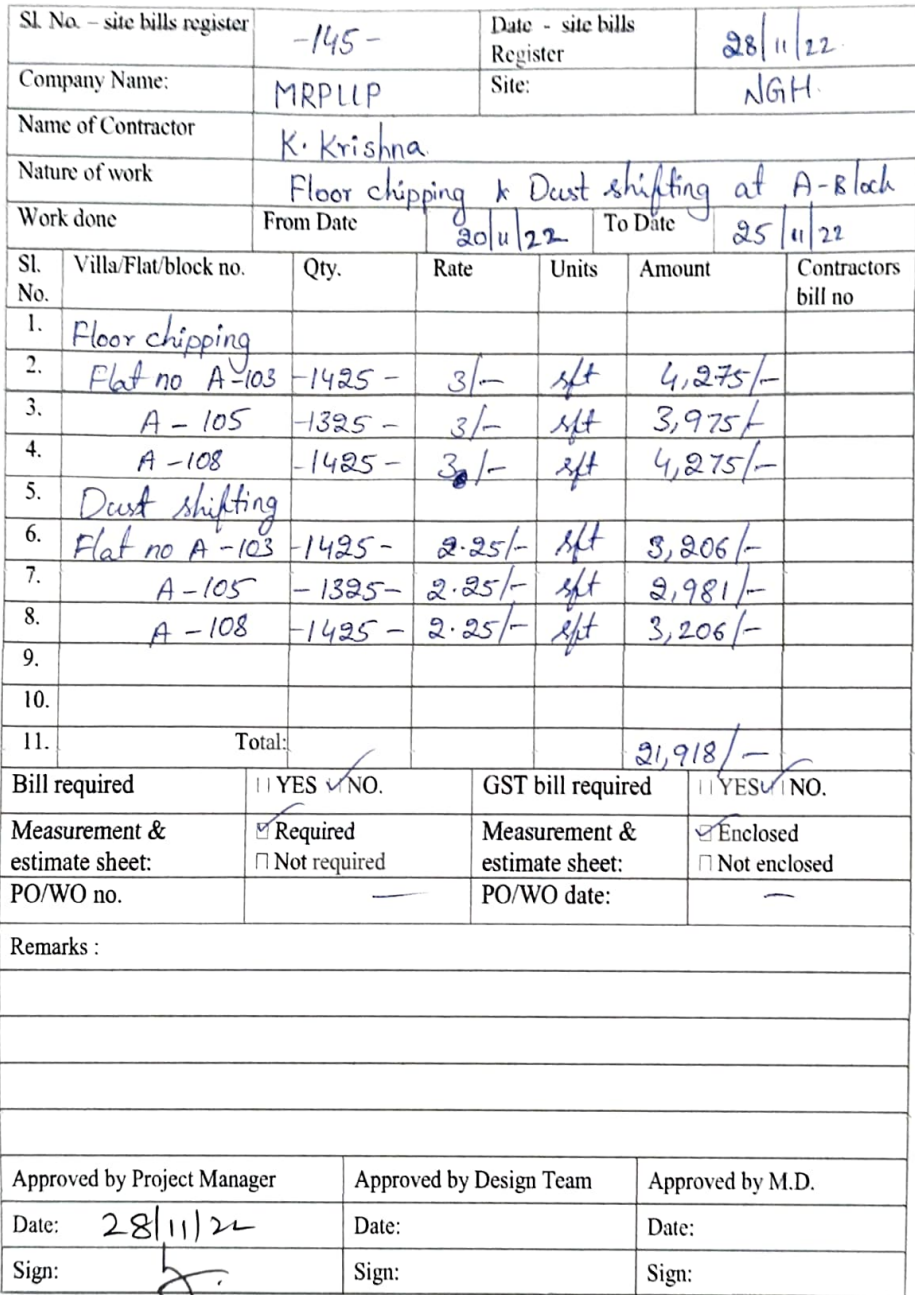 Sl. No. – site bills register -145- Date - site bills Register 28/11/22.
Company Name: MRPLLP Site: NGH.
Name of Contractor K. Krishna.
Nature of work Floor chipping & Dust shifting at A-Block
Work done From Date 20/11/22 To Date 25/11/22
Sl. No. Villa/Flat/block no. Qty. Rate Units Amount Contractors bill no
1. Floor chipping
2. Flat no A-103 -1425- 3/- sft 4,275/-
3. A-105 -1325- 3/- sft 3,975/-
4. A-108 -1425- 3/- sft 4,275/-
5. Dust shifting
6. Flat no A-103 -1425- 2.25/- sft 3,206/-
7. A-105 -1325- 2.25/- sft 2,981/-
8. A-108 -1425- 2.25/- sft 3,206/-
9.
10.
11. Total: 21,918/-
Bill required YES NO. GST bill required YES NO.
Measurement & estimate sheet: Required Not required Measurement & estimate sheet: Enclosed Not enclosed
PO/WO no. — PO/WO date: —
Remarks :
Approved by Project Manager Approved by Design Team Approved by M.D.
Date: 28/11/22 Date: Date:
Sign: Sign: Sign: